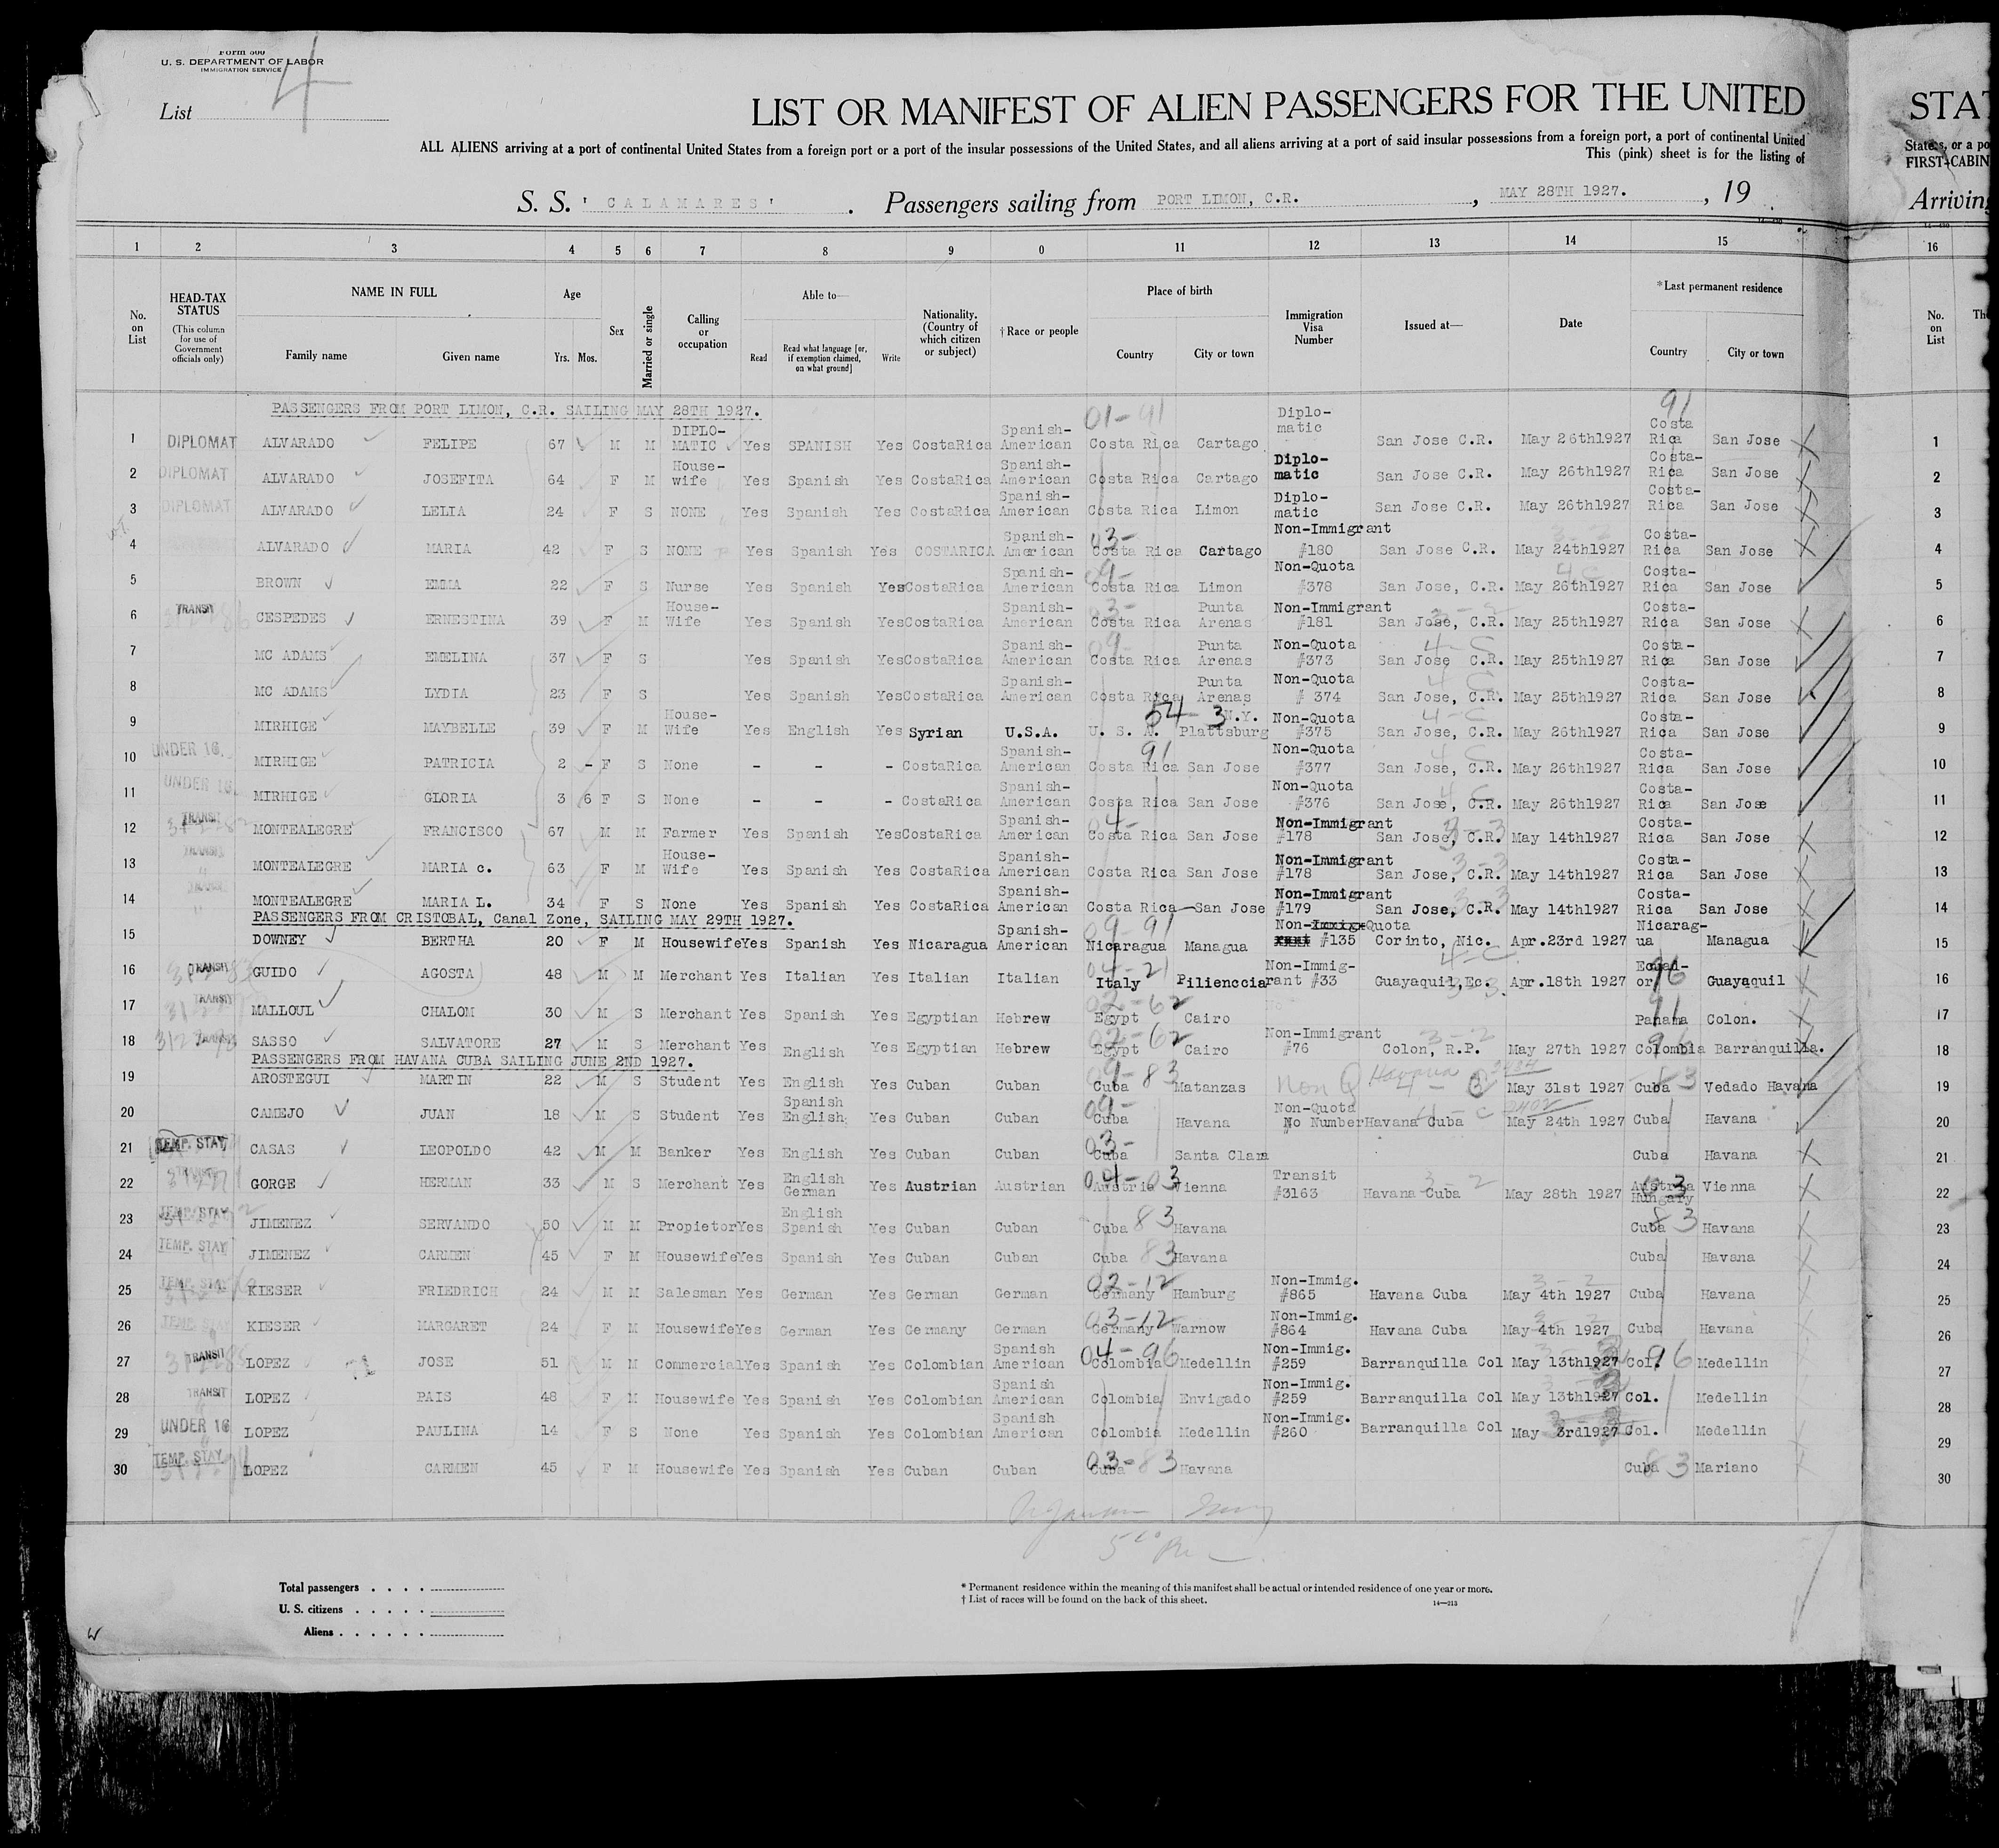 Form 500
U. S. DEPARTMENT OF LABOR
IMMIGRATION SERVICE
List 4
LIST OR MANIFEST OF ALIEN PASSENGERS FOR THE UNITED
STAT
ALL ALIENS arriving at a port of continental United States from a foreign port or a port of the insular possessions of the United States, and all aliens arriving at a port of said insular possessions from a foreign port, a port of continental United
States, or a po
This (pink) sheet is for the listing of
FIRST-CABIN
S. S. ' CALAMARES' . Passengers sailing from PORT LIMON, C.R. , MAY 28TH 1927. , 19
Arriving
1 2 3 4 5 6 7 8 9 0 11 12 13 14 15 16
No. on List
HEAD-TAX STATUS (This column for use of Government officials only)
NAME IN FULL Family name Given name
Age Yrs. Mos.
Sex
Married or single
Calling or occupation
Able to— Read Read what language [or, if exemption claimed, on what ground] Write
Nationality. (Country of which citizen or subject)
† Race or people
Place of birth Country City or town
Immigration Visa Number
Issued at—
Date
* Last permanent residence Country City or town
No. on List
PASSENGERS FROM PORT LIMON, C.R. SAILING MAY 28TH 1927. 01-41 91
1 DIPLOMAT ALVARADO FELIPE 67 M M DIPLO-MATIC Yes SPANISH Yes CostaRica Spanish-American Costa Rica Cartago Diplo-matic San Jose C.R. May 26th1927 Costa Rica San Jose 1
2 DIPLOMAT ALVARADO JOSEFITA 64 F M House-wife Yes Spanish Yes CostaRica Spanish-American Costa Rica Cartago Diplo-matic San Jose C.R. May 26th1927 Costa-Rica San Jose 2
3 DIPLOMAT ALVARADO LELIA 24 F S NONE Yes Spanish Yes CostaRica Spanish-American Costa Rica Limon Diplo-matic San Jose C.R. May 26th1927 Costa-Rica San Jose 3
4 ALVARADO MARIA 42 F S NONE Yes Spanish Yes COSTARICA Spanish-American 03- Costa Rica Cartago Non-Immigrant #180 San Jose C.R. 3-2 May 24th1927 Costa-Rica San Jose 4
5 BROWN EMMA 22 F S Nurse Yes Spanish Yes CostaRica Spanish-American 09- Costa Rica Limon Non-Quota #378 San Jose, C.R. 4C May 26th1927 Costa-Rica San Jose 5
6 TRANSIT CESPEDES ERNESTINA 39 F M House-Wife Yes Spanish Yes CostaRica Spanish-American 03- Costa Rica Punta Arenas Non-Immigrant #181 San Jose, C.R. 3-2 May 25th1927 Costa-Rica San Jose 6
7 MC ADAMS EMELINA 37 F S Yes Spanish Yes CostaRica Spanish-American 09- Costa Rica Punta Arenas Non-Quota #373 San Jose C.R. 4-C May 25th1927 Costa-Rica San Jose 7
8 MC ADAMS LYDIA 23 F S Yes Spanish Yes CostaRica Spanish-American Costa Rica Punta Arenas Non-Quota # 374 San Jose, C.R. 4C May 25th1927 Costa-Rica San Jose 8
9 MIRHIGE MAYBELLE 39 F M House-Wife Yes English Yes Syrian U.S.A. 54-3 U. S. A. N.Y. Plattsburg Non-Quota #375 San Jose, C.R. 4-C May 26th1927 Costa-Rica San Jose 9
10 UNDER 16. MIRHIGE PATRICIA 2 - F S None - - - CostaRica Spanish-American 91 Costa Rica San Jose Non-Quota #377 San Jose, C.R. 4C May 26th1927 Costa-Rica San Jose 10
11 UNDER 16. MIRHIGE GLORIA 3 6 F S None - - - CostaRica Spanish-American Costa Rica San Jose Non-Quota #376 San Jose, C.R. 4C May 26th1927 Costa-Rica San Jose 11
12 TRANSIT MONTEALEGRE FRANCISCO 67 M M Farmer Yes Spanish Yes CostaRica Spanish-American 04- Costa Rica San Jose Non-Immigrant #178 San Jose, C.R. 3-3 May 14th1927 Costa-Rica San Jose 12
13 TRANSIT MONTEALEGRE MARIA c. 63 F M House-Wife Yes Spanish Yes CostaRica Spanish-American Costa Rica San Jose Non-Immigrant #178 San Jose, C.R. 3-3 May 14th1927 Costa-Rica San Jose 13
14 TRANSIT MONTEALEGRE MARIA L. 34 F S None Yes Spanish Yes CostaRica Spanish-American Costa Rica San Jose Non-Immigrant #179 San Jose, C.R. 3-3 May 14th1927 Costa-Rica San Jose 14
PASSENGERS FROM CRISTOBAL, Canal Zone, SAILING MAY 29TH 1927.
15 DOWNEY BERTHA 20 F M Housewife Yes Spanish Yes Nicaragua Spanish-American 09-91 Nicaragua Managua Non-Quota #135 Corinto, Nic. 4-C Apr.23rd 1927 Nicarag-ua Managua 15
16 TRANSIT GUIDO AGOSTA 48 M M Merchant Yes Italian Yes Italian Italian 04-21 Italy Pilienccia Non-Immig-rant #33 Guayaquil,Ec. 3-3 Apr.18th 1927 Ecuad-or 96 Guayaquil 16
17 TRANSIT MALLOUL CHALOM 30 M S Merchant Yes Spanish Yes Egyptian Hebrew 02-62 Egypt Cairo Panama 91 Colon. 17
18 TRANSIT SASSO SALVATORE 27 M S Merchant Yes English Yes Egyptian Hebrew 02-62 Egypt Cairo Non-Immigrant #76 Colon, R.P. 3-2 May 27th 1927 Colombia 96 Barranquilla. 18
PASSENGERS FROM HAVANA CUBA SAILING JUNE 2ND 1927.
19 AROSTEGUI MARTIN 22 M S Student Yes English Yes Cuban Cuban 09-83 Cuba Matanzas Non Q Havana 4-C May 31st 1927 Cuba 83 Vedado Havana 19
20 CAMEJO JUAN 18 M S Student Yes Spanish English Yes Cuban Cuban 09- Cuba Havana Non-Quota No Number Havana Cuba 4-C May 24th 1927 Cuba Havana 20
21 TEMP. STAY CASAS LEOPOLDO 42 M M Banker Yes English Yes Cuban Cuban 03- Cuba Santa Clara Cuba Havana 21
22 TRANSIT GORGE HERMAN 33 M S Merchant Yes English German Yes Austrian Austrian 04-03 Austria Vienna Transit #3163 Havana Cuba 3-2 May 28th 1927 Austria Hungary Vienna 22
23 TEMP. STAY JIMENEZ SERVANDO 50 M M Propietor Yes English Spanish Yes Cuban Cuban Cuba 83 Havana Cuba 83 Havana 23
24 TEMP. STAY JIMENEZ CARMEN 45 F M Housewife Yes Spanish Yes Cuban Cuban Cuba 83 Havana Cuba Havana 24
25 TEMP. STAY KIESER FRIEDRICH 24 M M Salesman Yes German Yes German German 02-12 Germany Hamburg Non-Immig. #865 Havana Cuba 3-2 May 4th 1927 Cuba Havana 25
26 TEMP. STAY KIESER MARGARET 24 F M Housewife Yes German Yes Germany German 03-12 Germany Warnow Non-Immig. #864 Havana Cuba 3-2 May 4th 1927 Cuba Havana 26
27 TRANSIT LOPEZ JOSE 51 M M Commercial Yes Spanish Yes Colombian Spanish American 04-96 Colombia Medellin Non-Immig. #259 Barranquilla Col May 13th1927 Col. 96 Medellin 27
28 TRANSIT LOPEZ PAIS 48 F M Housewife Yes Spanish Yes Colombian Spanish American Colombia Envigado Non-Immig. #259 Barranquilla Col May 13th1927 Col. Medellin 28
29 UNDER 16 LOPEZ PAULINA 14 F S None Yes Spanish Yes Colombian Spanish American Colombia Medellin Non-Immig. #260 Barranquilla Col May 3rd1927 Col. Medellin 29
30 TEMP. STAY LOPEZ CARMEN 45 F M Housewife Yes Spanish Yes Cuban Cuban 03-83 Cuba Havana Cuba 83 Mariano 30
Total passengers
U. S. citizens
Aliens
* Permanent residence within the meaning of this manifest shall be actual or intended residence of one year or more.
† List of races will be found on the back of this sheet.
14—213